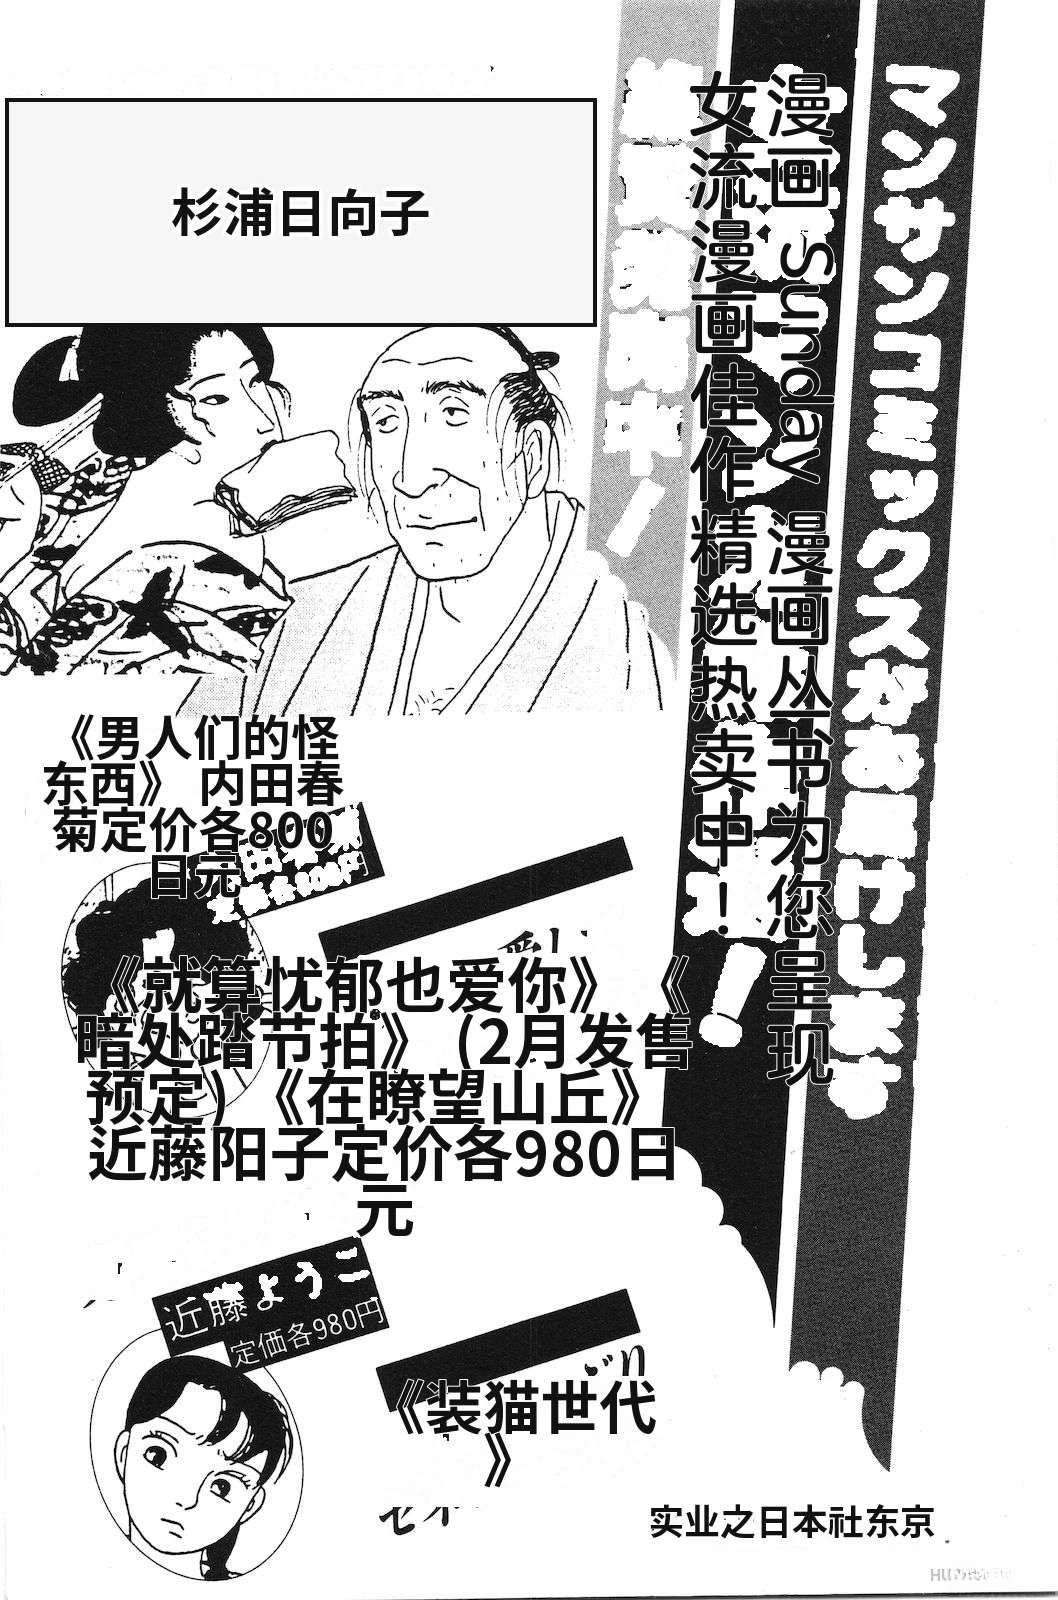 マンサンコミックスがお届けします
漫画 Sunday 漫画丛书为您呈现
女流漫画佳作精选热卖中！
杉浦日向子
《男人们的怪
东西》 内田春
菊定价各800
日元
《就算忧郁也爱你》 《
暗处踏节拍》 (2月发售
预定) 《在瞭望山丘》
近藤阳子定价各980日
元
近藤ようこ
定価各980円
《装猫世代
》
实业之日本社东京